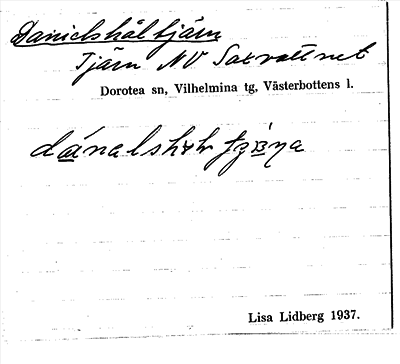 Danielshåltjärn
Tjärn NV Saxvattnet
Dorotea sn, Vilhelmina tg, Västerbottens l.
Lisa Lidberg 1937.